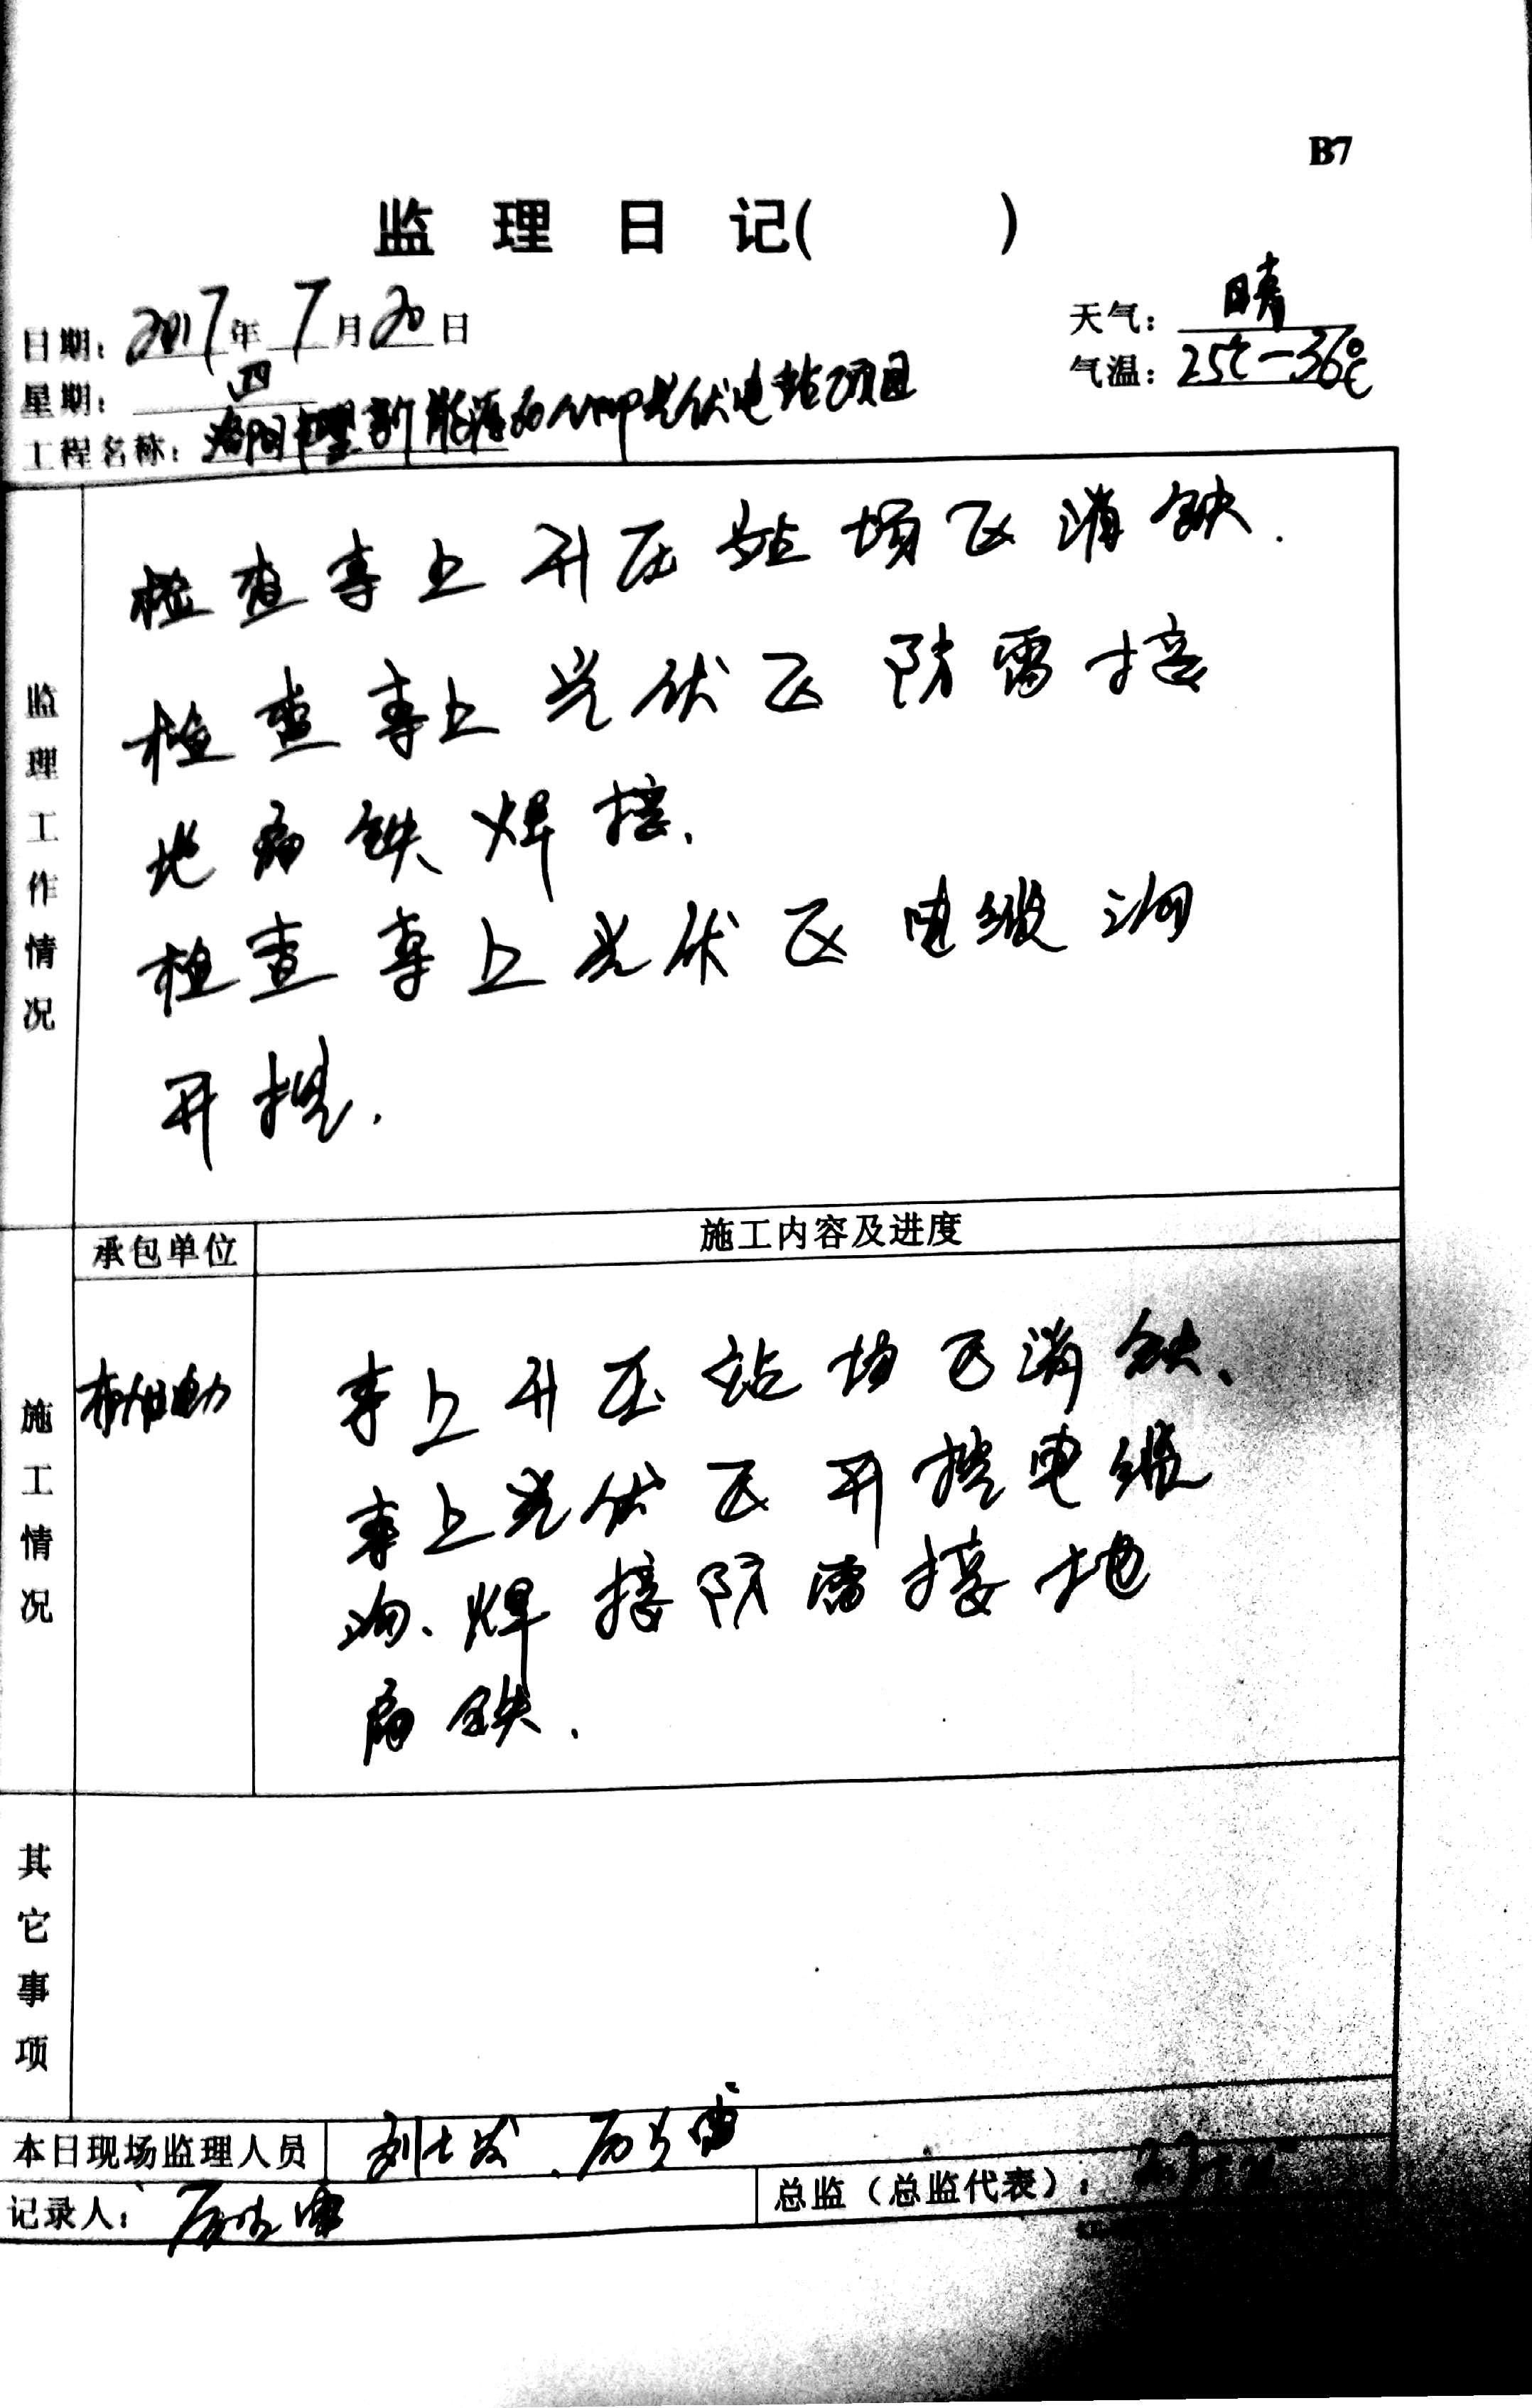 B7
监理日记( )
日期：2017年7月20日
天气：晴
星期：四
气温：25℃—36℃
工程名称：洛阳 新能源 光伏电站项目
监理工作情况
检查寺上升压站场区消缺.
检查寺上光伏区防雷接
地扁铁焊接.
检查寺上光伏区电缆沟
开挖.
施工情况
承包单位
施工内容及进度
寺上升压站场区消缺、
寺上光伏区开挖电缆
沟、焊接防雷接地
扁铁.
其它事项
本日现场监理人员
记录人：
总监（总监代表）：